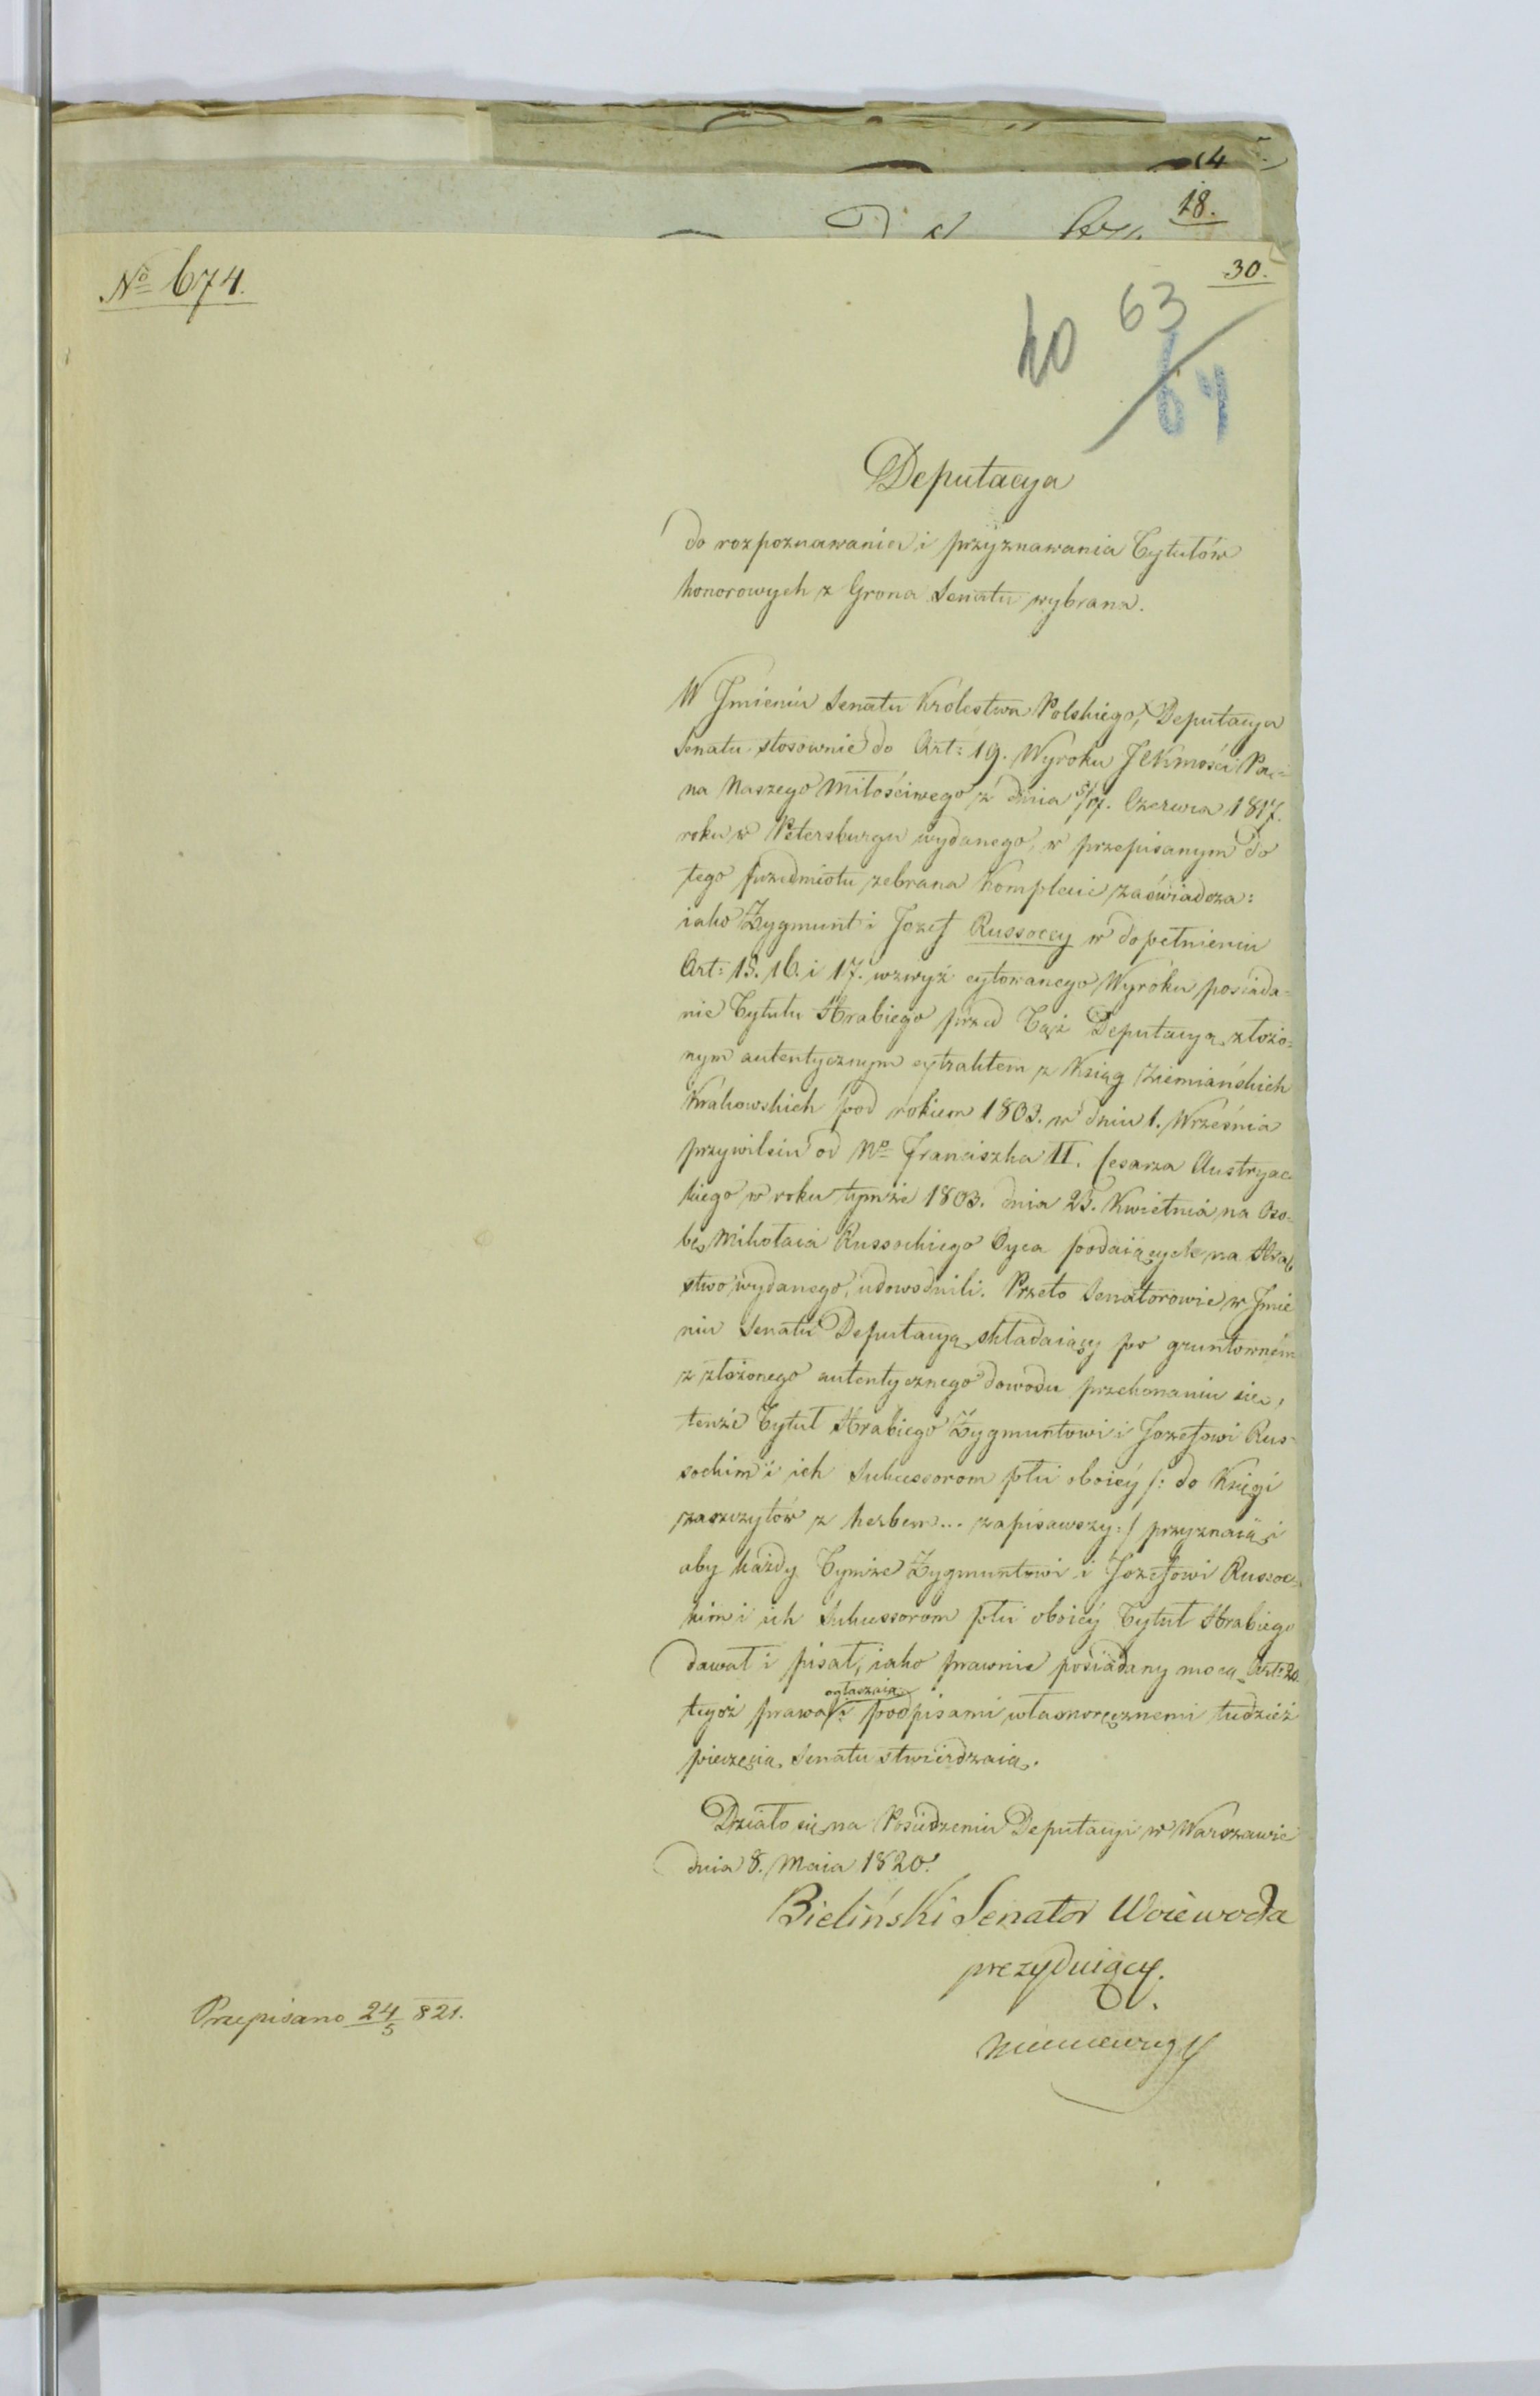 18.
30.
No 674.
40 63
64
Deputacya
do rozpoznawania i przyznawania Tytułów
honorowych z Grona Senatu wybrana.
W Jmieniu Senatu Królestwa Polskiego, Deputacya
Senatu stosownie do Art: 19. Wyroku JCKmości Pa-
na Naszego Miłościwego z dnia 5/17. Czerwca 1817.
roku w Petersburgu wydanego, w przepisanym do
tego przedmiotu zebrana komplecie zaświadcza:
iako Zygmunt i Jozef Russoccy w dopełnieniu
Art: 15. 16. i 17. wzwyż cytowanego Wyroku posiada-
nie Tytułu Hrabiego przed Tąż Deputacyą złożo-
nym autentycznym extraktem z Ksiąg Ziemiańskich
Krakowskich pod rokiem 1803. w dniu 1. Września
przywileiu od Franciszka II. Cesarza Austryac-
kiego w roku tymże 1803. dnia 25. Kwietnia na Oso-
bę Mikołaia Russockiego Oyca podaiących na Hrab
stwo wydanego, udowodnili. Przeto Senatorowie w Jmie
niu Senatu Deputacyą składaiący po gruntowném
z złożonego autentycznego dowodu przekonaniu się,
tenże Tytuł Hrabiego Zygmuntowi i Jozefowi Rus-
sockim i ich Sukcessorom płci oboiey /: do Księgi
zaszczytów z herbem... zapisawszy :/ przyznaią i
aby każdy Tymże Zygmuntowi i Jozefowi Russoc-
kim i ich Sukcessorom płci oboiey Tytuł Hrabiego
dawał i pisał, iako prawnie posiadany mocą Art: 20.
ogłaszaią
tegoż prawa i podpisami własnoręcznemi tudzież
pieczęcią Senatu stwierdzaią.
Działo się na Posiedzeniu Deputacyi w Warszawie
dnia 8. Maia 1820.
Bieliński Senator Woiewoda
prezyduiący.
Niemcewicz
Przepisano 24/5 821.